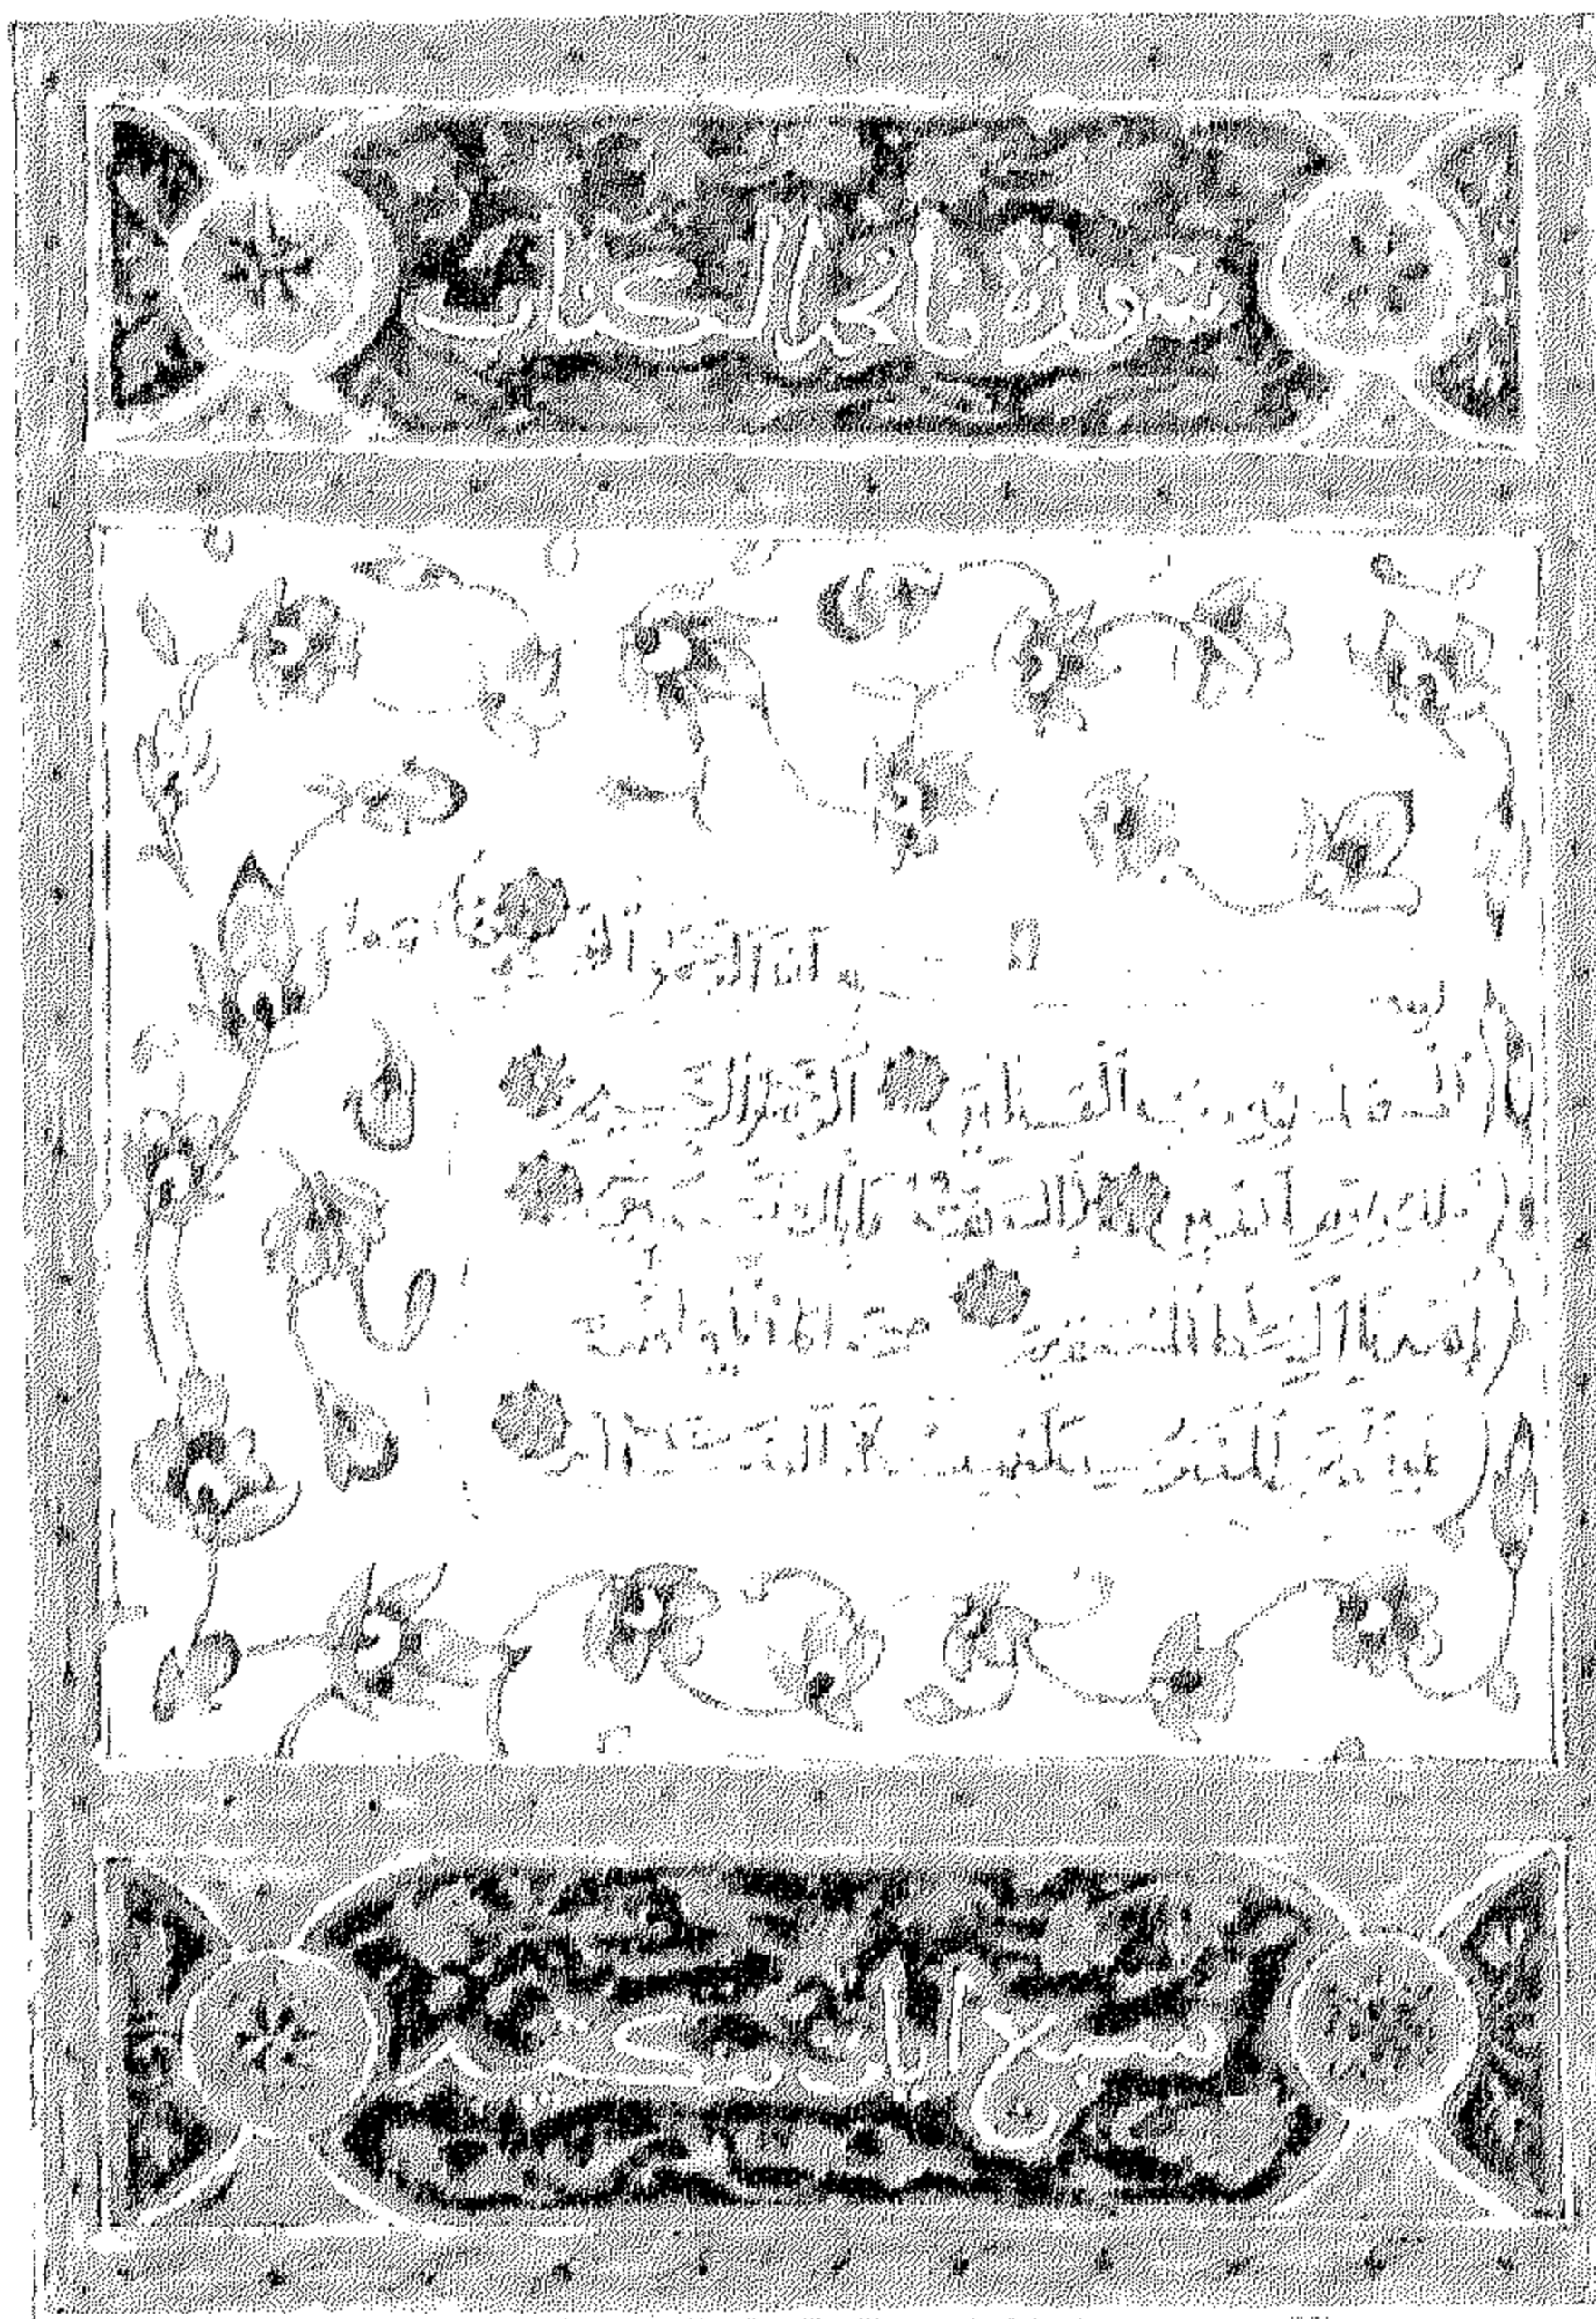 سورة فاتحة الكتاب
الله الرحمن الرحيم
الحمد لله رب العالمين الرحمن الرحيم
ملك يوم الدين إياك نعبد وإياك نستعين
اهدنا الصراط المستقيم صراط الذين أنعمت
عليهم غير المغضوب عليهم ولا الضالين
سبع ايات مكية